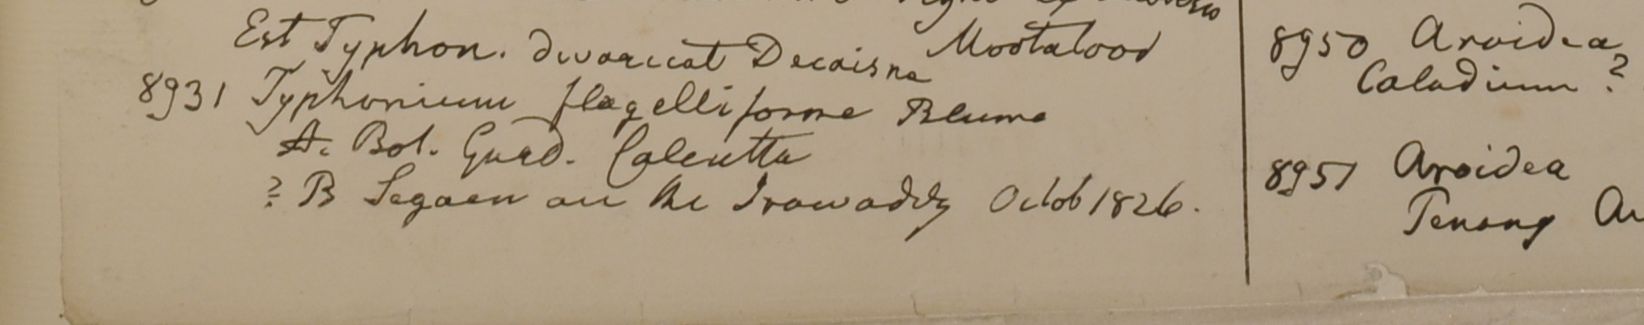 Est Typhon. divaricat Decaisne Mootalood
8931 Typhonium flagelliforme Blume
A. Bot. Gard. Calcutta
? B Segaen on the Irawaddy Octob 1826.
8950 Aroidea
Caladium ?
8951 Aroidea
Penang